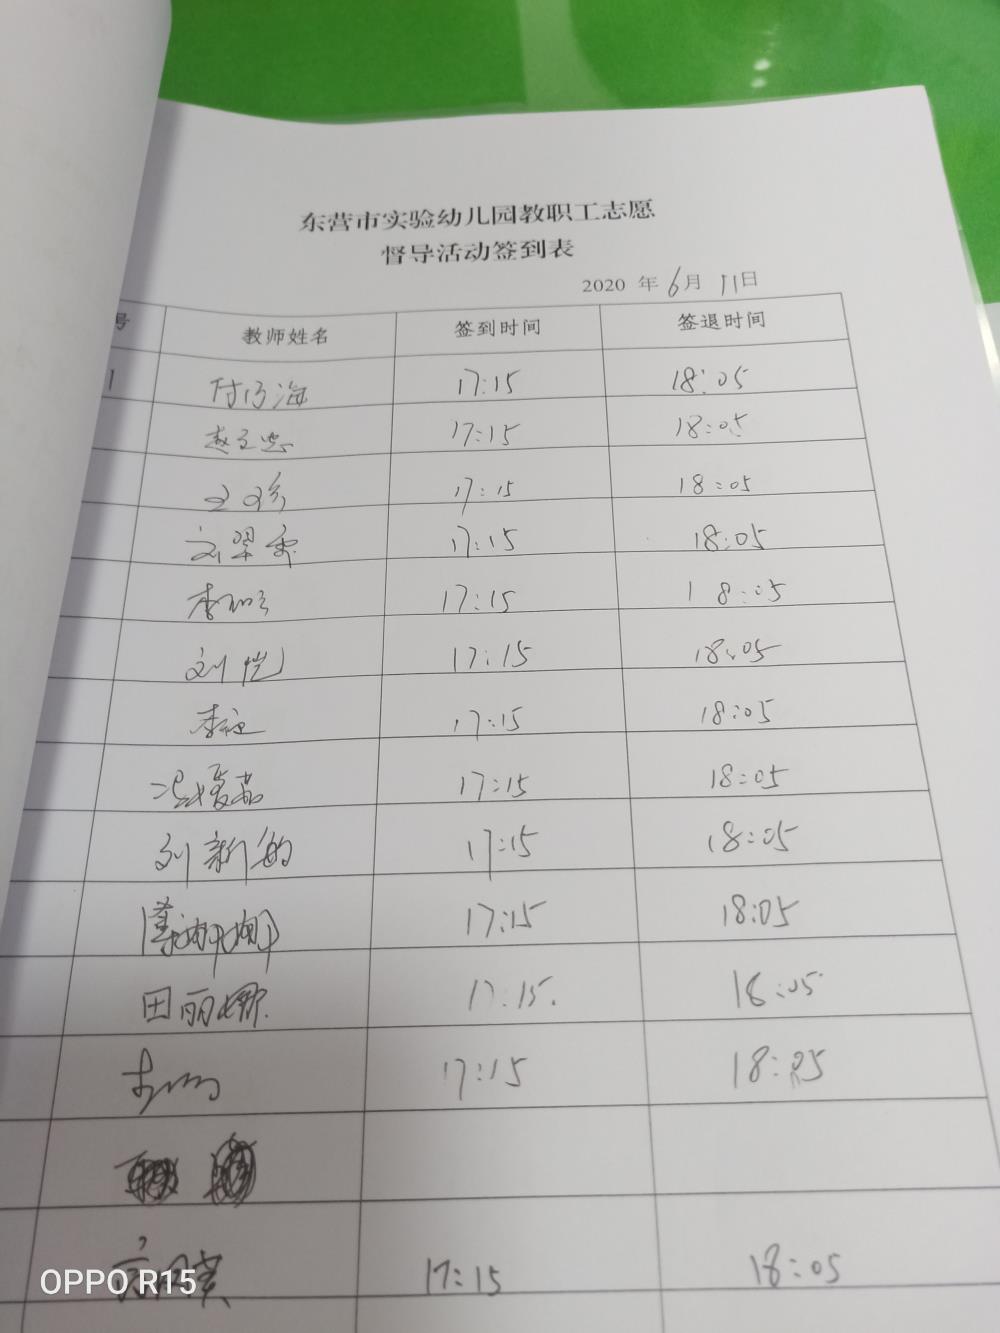 东营市实验幼儿园教职工志愿
督导活动签到表
2020 年 6月 11日
号 教师姓名 签到时间 签退时间
1 付海 17:15 18:05
赵立忠 17:15 18:05
17:15 18:05
刘翠香 17:15 18:05
李 17:15 18:05
刘恺 17:15 18:05
李 17:15 18:05
冯爱茹 17:15 18:05
刘新 17:15 18:05
17:15 18:05
田丽娜 17:15. 18:05
17:15 18:05
17:15 18:05
OPPO R15